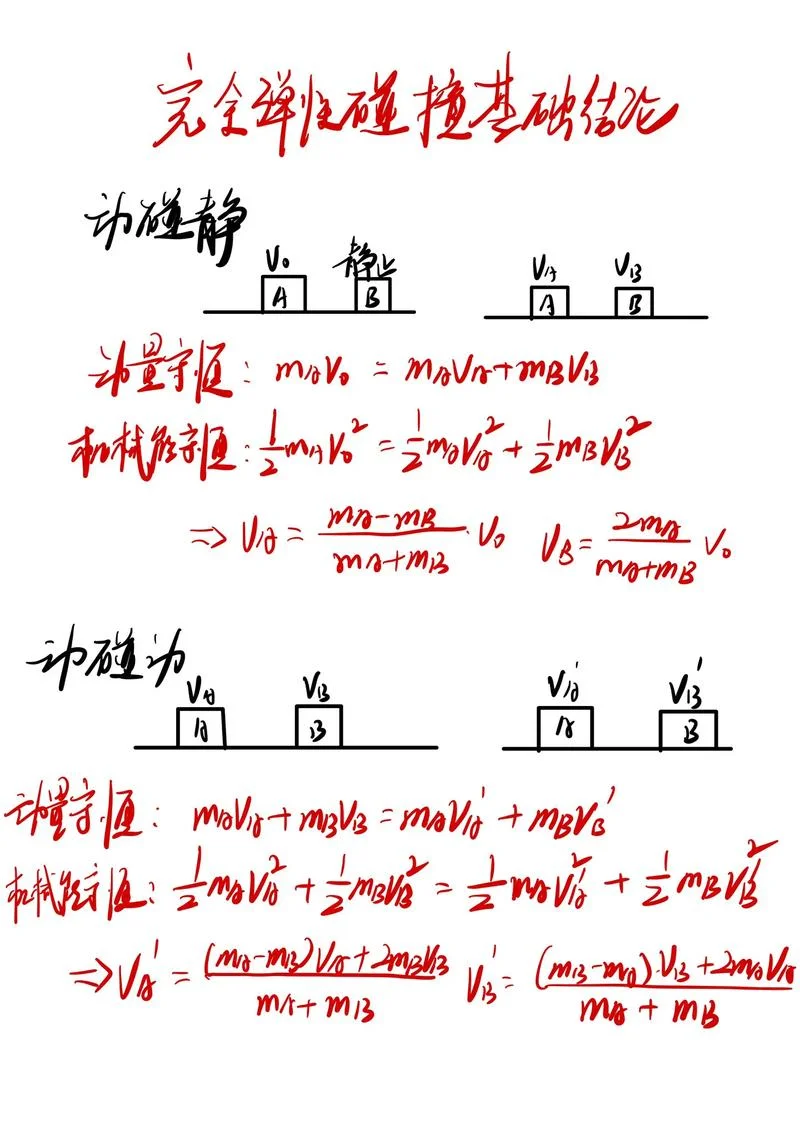 完全弹性碰撞基础结论
动碰静
V₀ 静止 V_A V_B
A B A B
动量守恒: m_AV₀ = m_AV_A+m_BV_B
机械能守恒: ½m_AV₀² = ½m_AV_A² + ½m_BV_B²
⇒ V_A = (m_A-m_B)/(m_A+m_B)·V₀ V_B = 2m_A/(m_A+m_B) V₀
动碰动
V_A V_B V_A' V_B'
A B A B
动量守恒: m_AV_A+m_BV_B = m_AV_A' + m_BV_B'
机械能守恒: ½m_AV_A² + ½m_BV_B² = ½m_AV_A'² + ½m_BV_B'²
⇒ V_A' = ((m_A-m_B)V_A+2m_BV_B)/(m_A+m_B) V_B' = ((m_B-m_A)·V_B+2m_AV_A)/(m_A+m_B)